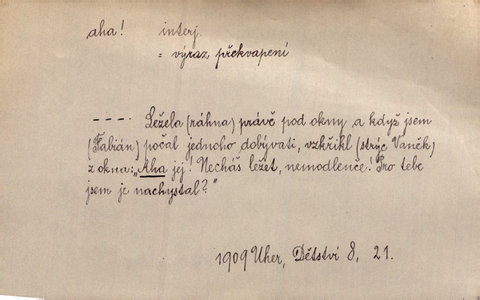 aha! interj.
= výraz překvapení
----. Ležela (ráhna) právě pod okny a když jsem
(Fabián) počal jednoho dobývati, vzkřikl (strýc Vaněk)
z okna: „Aha jej! Necháš ležet, nemodlenče! Pro tebe
jsem je nachystal?"
1909 Uher, Dětství 8, 21.